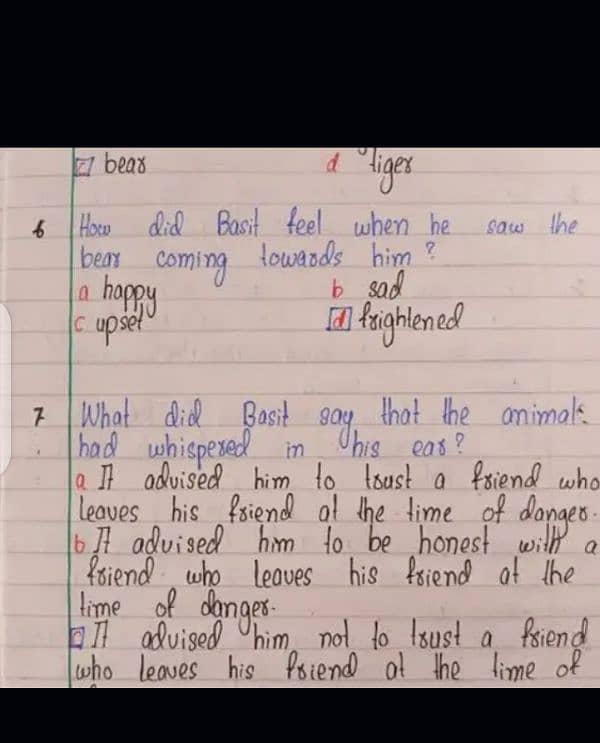 c bear d tiger
6 How did Basit feel when he saw the
bear coming towards him ?
a happy b sad
c upset d frightened
7 What did Basit say that the animal
had whispered in his ear ?
a It advised him to trust a friend who
leaves his friend at the time of danger.
b It advised him to be honest with a
friend who leaves his friend at the
time of danger.
c It advised him not to trust a friend
who leaves his friend at the time of